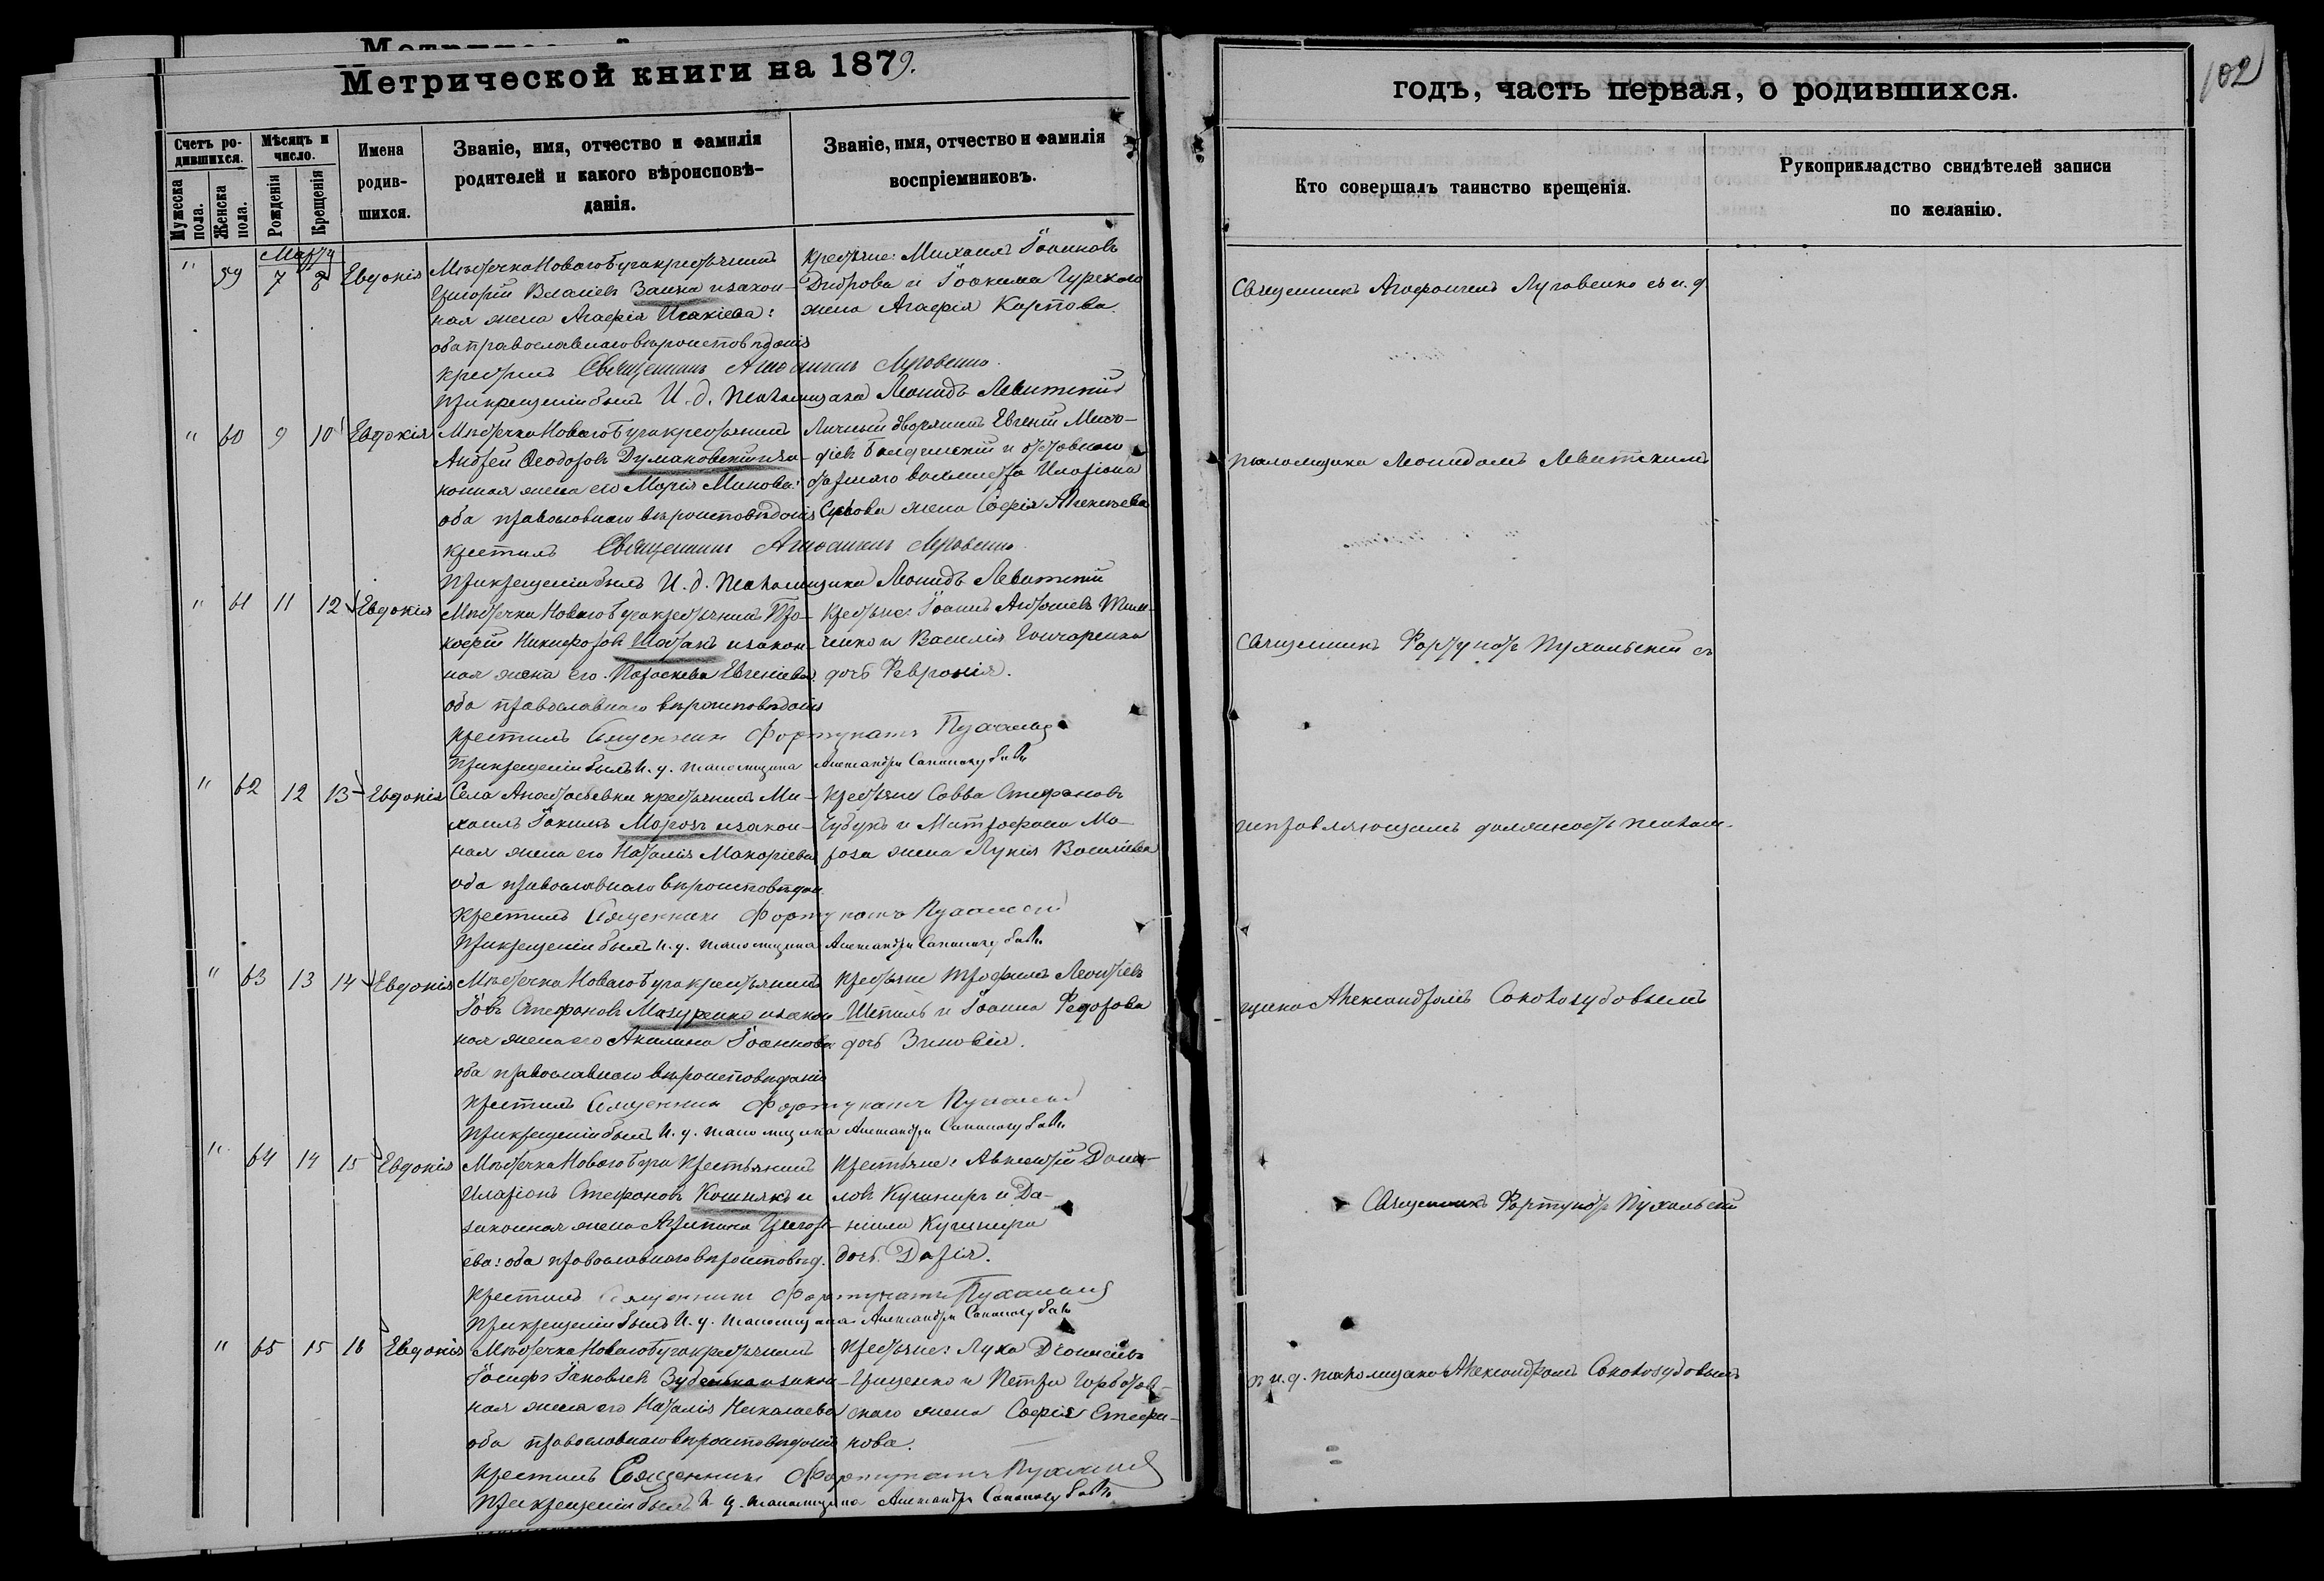 Метрической книги на 1879.
Счетъ родившихся.
Мѣсяцъ и число.
Имена родившихся.
Званіе, имя, отчество и фамилія
родителей и какого вѣроисповѣ-
данія.
Званіе, имя, отчество и фамилія
воспріемниковъ.
Мужеска пола.
Женска пола.
Рожденія
Крещенія
Мартъ
" 59 7 8 Евдокія
Мѣстечка Новаго Буга крестьянинъ
Григорій Власіевъ Заика и закон-
ная жена Агафія Исакіева:
оба православнаго вѣроисповѣданія
Крестьяне: Михаилъ Іоанновъ
Диброва и Іоакима Гурскаго
жена Агафія Карпова.
Крестилъ Священникъ Луговенко
При крещеніи былъ И. д. псаломщика Леонидъ Левитскій
" 60 9 10 Евдокія
Мѣстечка Новаго Буга крестьянинъ
Андрей Ѳеодоровъ Думановскій и за-
конная жена его Марія Минова:
оба православнаго вѣроисповѣданія
Личный дворянинъ Евгеній
и отставнаго
жена Софія Алексѣева
Крестилъ Священникъ Луговенко
При крещеніи былъ И. д. псаломщика Леонидъ Левитскій
" 61 11 12 Евдокія
Мѣстечка Новаго Буга крестьянинъ Про-
кофій Никифоровъ Шатанъ и закон-
ная жена его Параскева Евгеніева:
оба православнаго вѣроисповѣданія
Крестьяне: Іоаннъ Антоніевъ Тим-
ченко и Василія Гончаренка
дочь Февронія.
Крестилъ Священникъ Фортунатъ Пухальскій
При крещеніи былъ И. д. псаломщика Александръ
" 62 12 13 Евдокія
Села Анастасьевки крестьянинъ Ми-
хаилъ Іакимовъ Морозъ и закон-
ная жена его Наталія Макаріева
оба православнаго вѣроисповѣдан.
Крестьяне Савва Стефановъ
Чубукъ и Митрофана Мо-
роза жена Лукія Василіева
Крестилъ Священникъ Фортунатъ Пухальскій
При крещеніи былъ И. д. псаломщика Александръ
" 63 13 14 Евдокія
Мѣстечка Новаго Буга крестьянинъ
Іовъ Стефановъ Мазуренко и закон
ная жена его Акилина Іоаннова
оба православнаго вѣроисповѣданія
Крестьяне Трофимъ Леонтіевъ
Шпиль и Іоанна Федорова
дочь Зиновія.
Крестилъ Священникъ Фортунатъ Пухальскій
При крещеніи былъ И. д. псаломщика Александръ
" 64 14 15 Евдокія
Мѣстечка Новаго Буга Крестьянинъ
Иларіонъ Стефановъ Кошнякъ и
законная жена Агрипина Григорі-
ева: оба православнаго вѣроисповѣд.
Крестьяне: Авксентій Дани-
ловъ Кушниръ и Да-
ніила Кушнира
дочь Дарія.
Крестилъ Священникъ Фортунатъ Пухальскій
При крещеніи былъ И. д. псаломщика Александръ
" 65 15 16 Евдокія
Мѣстечка Новаго Буга крестьянинъ
Іосифъ Іаковлевъ Зубенька и закон-
ная жена его Наталія Николаева
оба православнаго вѣроисповѣданія
Крестьяне: Лука Діонисіевъ
Гриценко и Петра Горбатов-
скаго жена Софія Стефа-
нова.
Крестилъ Священникъ Фортунатъ Пухальскій
При крещеніи былъ И д. псаломщика Александръ
годъ, часть первая, о родившихся.
102
Кто совершалъ таинство крещенія.
Рукоприкладство свидѣтелей записи
по желанію.
Священникъ Луговенко съ и. д
псаломщика Леонидомъ Левитскимъ
Священникъ Фортунатъ Пухальскій съ
исправляющимъ должность псалом-
щика Александромъ
Священникъ Фортунатъ Пухальскій
съ и. д. псаломщика Александромъ